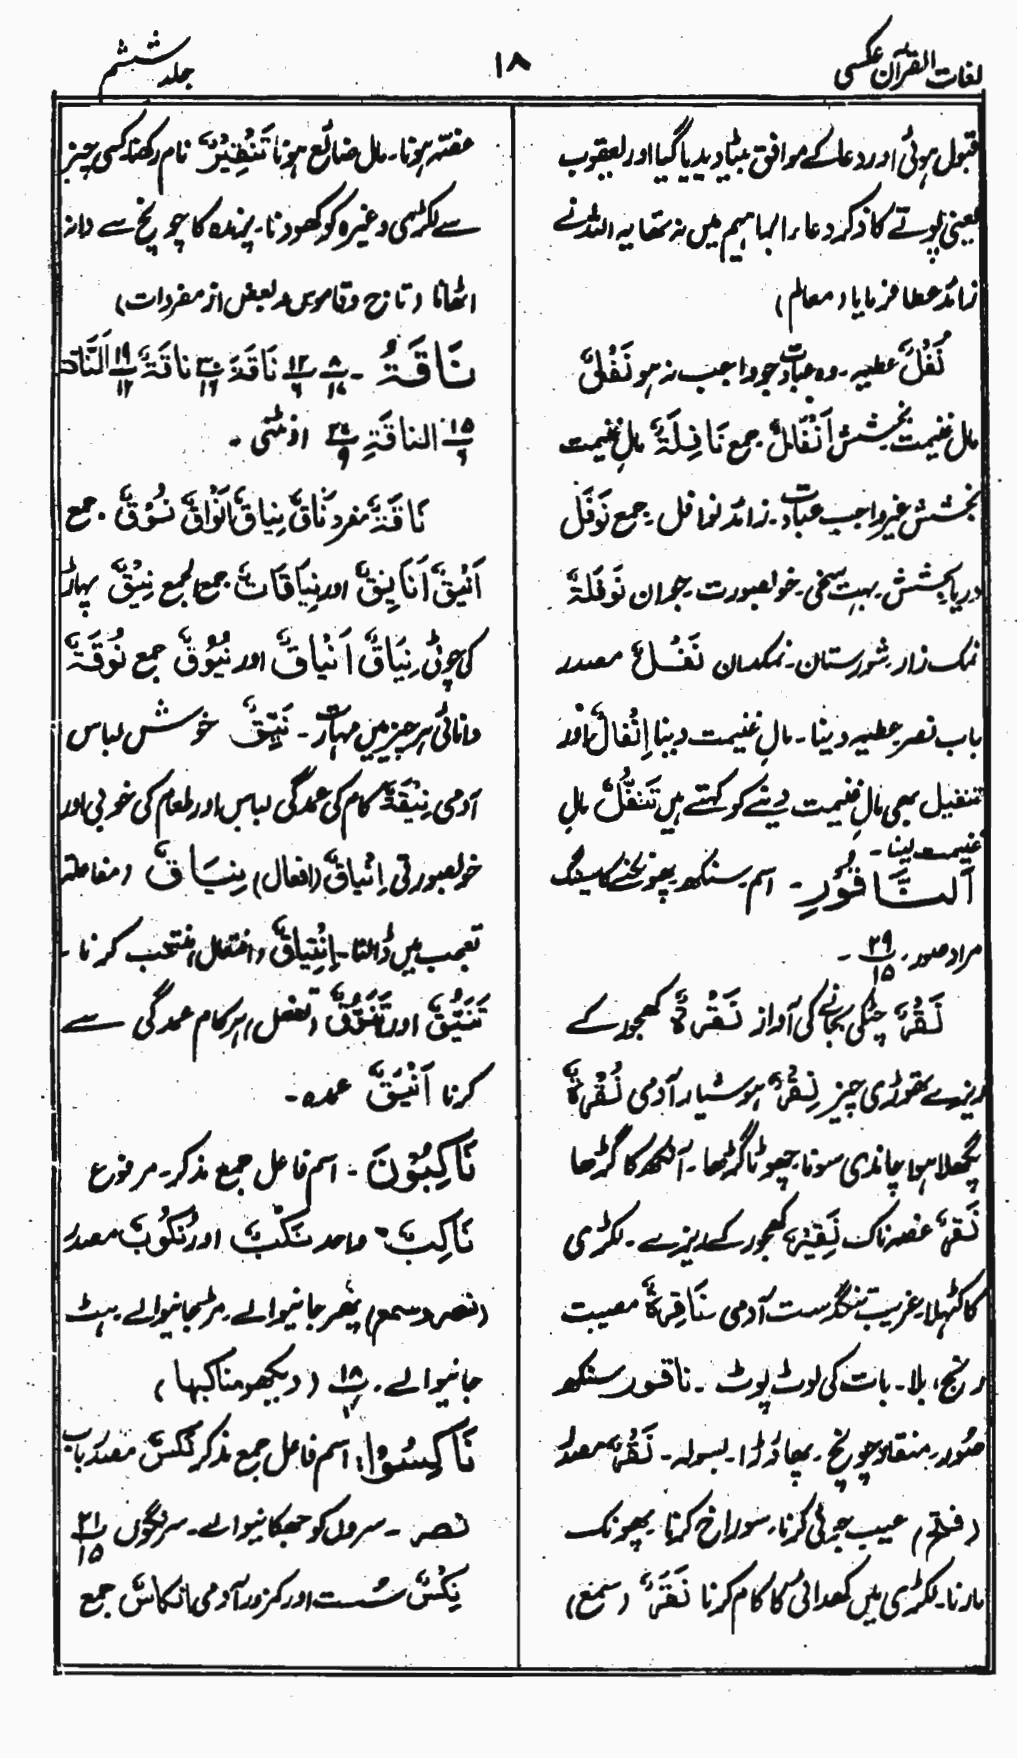 لغات القرآن عکسی
۱۸
جلد ششم
قبول ہوئی اور دعا کے موافق بیٹا دیدیا گیا اور یعقوب
یعنی پوتے کا ذکر دعاء ابراہیم میں نہ تھا یہ اللہ نے
زائد عطا فرمایا (معالم)
نَفْلٌ عطیہ۔ وہ عبادت جو واجب نہ ہو نَفْلٌ
مالِ غنیمت بخشش اَنْفَالٌ جمع نَافِلَۃٌ مالِ غنیمت
بخشش غیر واجب عبادت۔ زائد نوافل۔ جمع نَوْفَلٌ
دریا بخشش۔ بہت سخی۔ خوبصورت جوان نَوْفَلَۃٌ
نمک زار۔ شورستان۔ نمکدان نَفْلٌ مصدر
باب نصر عطیہ دینا۔ مالِ غنیمت دینا اِنْفَالٌ اور
تنفیل بھی مالِ غنیمت دینے کو کہتے ہیں تَنَفُّلٌ مالِ
غنیمت لینا۔
اَلنَّاقُوْرِ۔ اسم۔ سنکھ پھونکنے کا سینگ
مراد صور۔ ۲۹/۱۵ ۔
نَقْرٌ چٹکی بجانے کی آواز نَقْرَۃٌ کھجور کے
ریزے تھوڑی چیز نِقْرٌ ہوشیار آدمی نُقْرَۃٌ
پگھلا ہوا چاندی سونا۔ چھوٹا گڑھا۔ آنکھ کا گڑھا
نَقِرٌ غضبناک نَقِیْرٌ کھجور کے ریزے۔ لکڑی
کا کٹہلا۔ غریب تنگدست آدمی نَاقِرَۃٌ مصیبت
رنج، بلا۔ بات کی لوٹ پوٹ۔ ناقور سنکھ
صور۔ منقار چونچ۔ پھاوڑا۔ بسولہ۔ نَقْرٌ مصدر
(فتح) عیب جوئی کرنا۔ سوراخ کرنا۔ پھونک
مارنا۔ لکڑی میں کھدائی کا کام کرنا نَقَرٌ (سمع)
غصّہ ہونا۔ مال ضائع ہونا تَنْقِیْرٌ نام رکھنا کسی چیز
سے لکڑی وغیرہ کو کھودنا۔ پرندہ کا چونچ سے دانہ
اٹھانا (تاج و قاموس و بعض از مفردات)
نَاقَۃُ۔ ۸/۱۷ ۱۲/۶ نَاقَۃَ ناقَۃٌ ۱۹/۱۲ اَلنَّاقَۃَ
۱۵/۶ الناقَۃِ اونٹنی ۔
نَاقَۃٌ مفرد نَاقٌ نِیاقٌ اَنْوَاقٌ نُوْقٌ۔ جمع
اَنْیُقٌ اَنَایِنقٌ اور نِیَاقَاتٌ جمع الجمع نِیْقٌ پہاڑ
کی چوٹی نِیَاقٌ اَنْیَاقٌ اور نُیُوْقٌ جمع نُوْقَۃٌ
دانائی ہر چیز میں مہارت۔ نَیِّقٌ خوش لباس
آدمی نِیْقَۃٌ کام کی عمدگی لباس اور طعام کی خوبی اور
خوبصورتی اِنْیاقٌ (افعال) نِیَاقٌ (مفاعلۃ)
تعجب میں ڈالنا۔ اِنْتِیاقٌ (افتعال) منتخب کرنا۔
تَنَیُّقٌ اور تَنَوُّقٌ (تفعل) ہر کام عمدگی سے
کرنا اَنْیَقٌ عمدہ۔
نَاکِبُوْنَ۔ اسم فاعل جمع مذکر۔ مرفوع
نَاکِبٌ واحد نَکْبٌ اور نُکُوْبٌ مصدر
(نصر و سمع) پھر جانیوالے۔ مڑ جانیوالے۔ ہٹ
جانیوالے۔ ۱۸ (دیکھو مناکبہا)
نَاکِسُوْا: اسم فاعل جمع مذکر نَکْسٌ مصدر باب
نصر۔ سروں کو جھکانیوالے۔ سرنگوں ۲۱/۱۵
نِکْسٌ سست اور کمزور آدمی اَنْکَاسٌ جمع